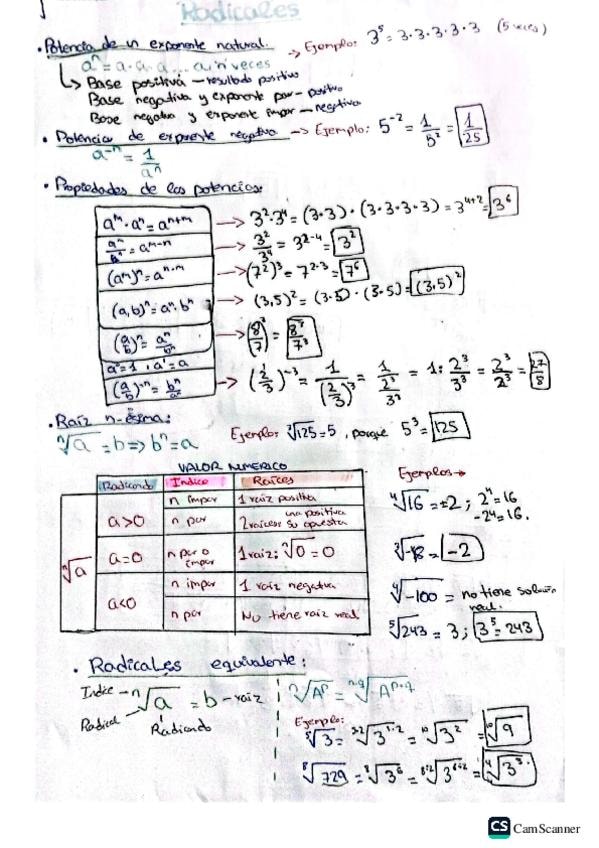 Radicales
• Potencia de un exponente natural. → Ejemplo: 3⁵ = 3·3·3·3·3 (5 veces)
aⁿ = a·a·a ... a, n veces
↳ Base positiva — resultado positivo
Base negativa y exponente par - positivo
Base negativa y exponente impar — negativo
• Potencias de exponente negativo → Ejemplo: 5⁻² = 1/5² = 1/25
a⁻ⁿ = 1/aⁿ
• Propiedades de las potencias:
aᵐ · aⁿ = aⁿ⁺ᵐ → 3²·3⁴ = (3·3)·(3·3·3·3) = 3⁴⁺² = 3⁶
= aᵐ⁻ⁿ → 3²/3⁴ = 3²⁻⁴ = 3²
(aᵐ)ⁿ = aⁿ·ᵐ → (7²)³ = 7²·³ = 7⁶
(a,b)ⁿ = aⁿ·bⁿ → (3,5)² = (3·5)·(3·5) = (3,5)²
(a/b)ⁿ = aⁿ/bⁿ →
a⁰=1, a¹=a
(a/b)⁻ⁿ = bⁿ/aⁿ → (2/3)⁻³ = 1/(2/3)³ = 1/(2³/3³) = 1: 2³/3³ = = 27/8
• Raíz n-ésima:
ⁿ√a = b => bⁿ = a Ejemplo: ³√125 = 5, porque 5³ = 125
VALOR NUMERICO
Radicando Indice Raíces
ⁿ√a
a>0 n impar 1 raíz positiva
n par 2 raíces una positiva su opuesta
a=0 n par o impar 1 raiz; ⁿ√0 = 0
a<0 n impar 1 raiz negativa
n par No tiene raiz real
Ejemplos →
⁴√16 = ±2; 2⁴ = 16
-2⁴ = 16.
³√-8 = -2
⁴√-100 = no tiene solución real.
⁵√243 = 3; 3⁵ = 243
• Radicales equivalente:
Indice - ⁿ√a = b - raiz
Radical
Radicando
ⁿ√Aᵖ = ⁿ·q√Aᵖ·q
Ejemplo:
⁵√3 = = ¹⁰√3² = ¹⁰√9
⁸√729 = ⁸√3⁶ =
CS CamScanner